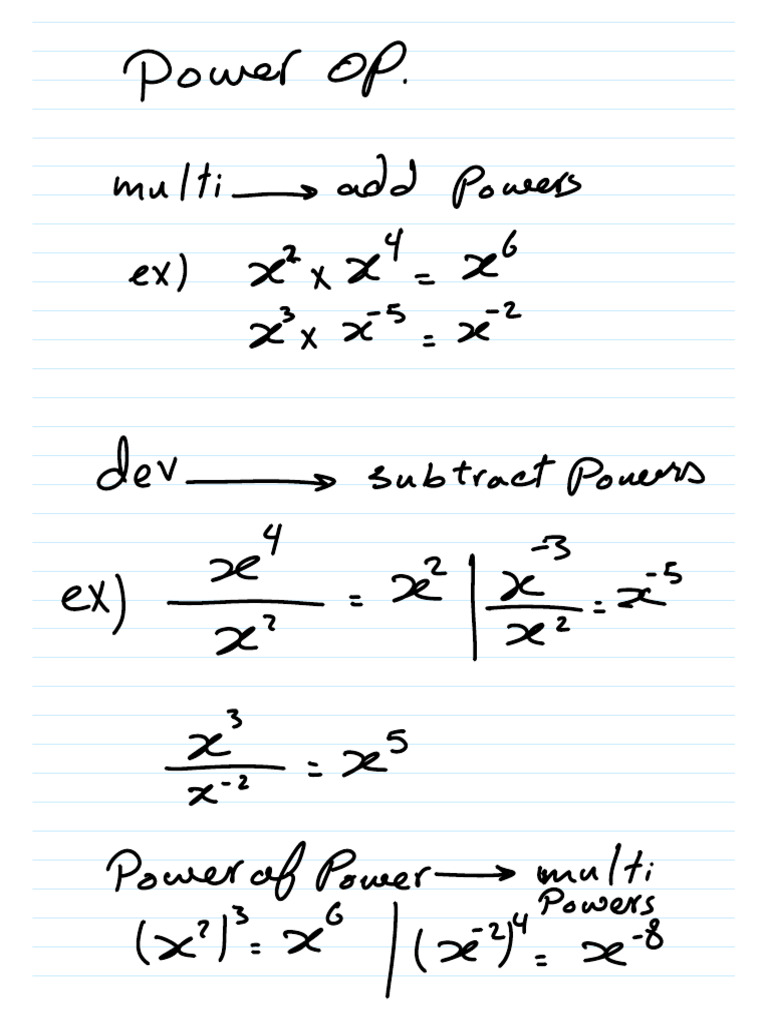 Power OP.
multi → add Powers
ex) x² × x⁴ = x⁶
x³ × x⁻⁵ = x⁻²
dev → subtract Powers
ex) x⁴/x² = x² | x⁻³/x² = x⁻⁵
x³/x⁻² = x⁵
Power of Power → multi
Powers
(x²)³ = x⁶ | (x⁻²)⁴ = x⁻⁸